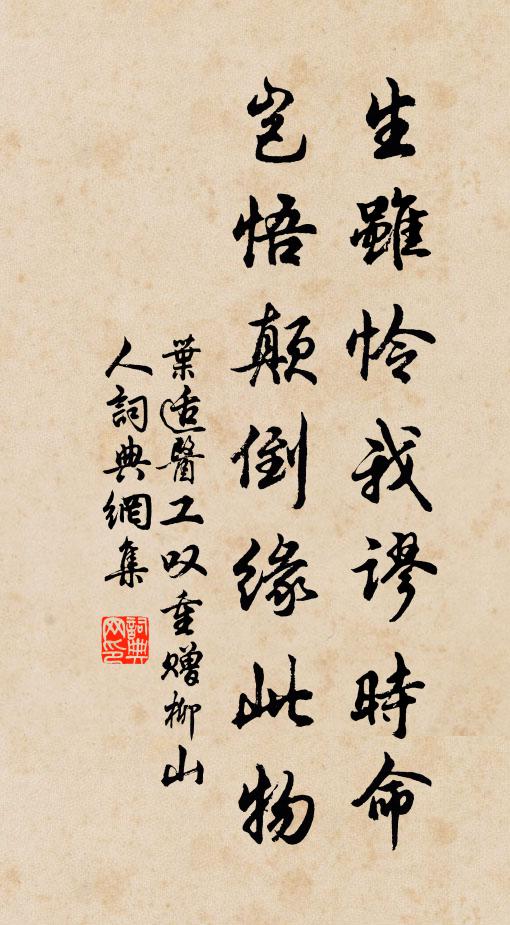 生雖怜我謬時命
豈悟顛倒緣此物
葉适醫工叹重贈柳山
人詞典網集
詞典
网印